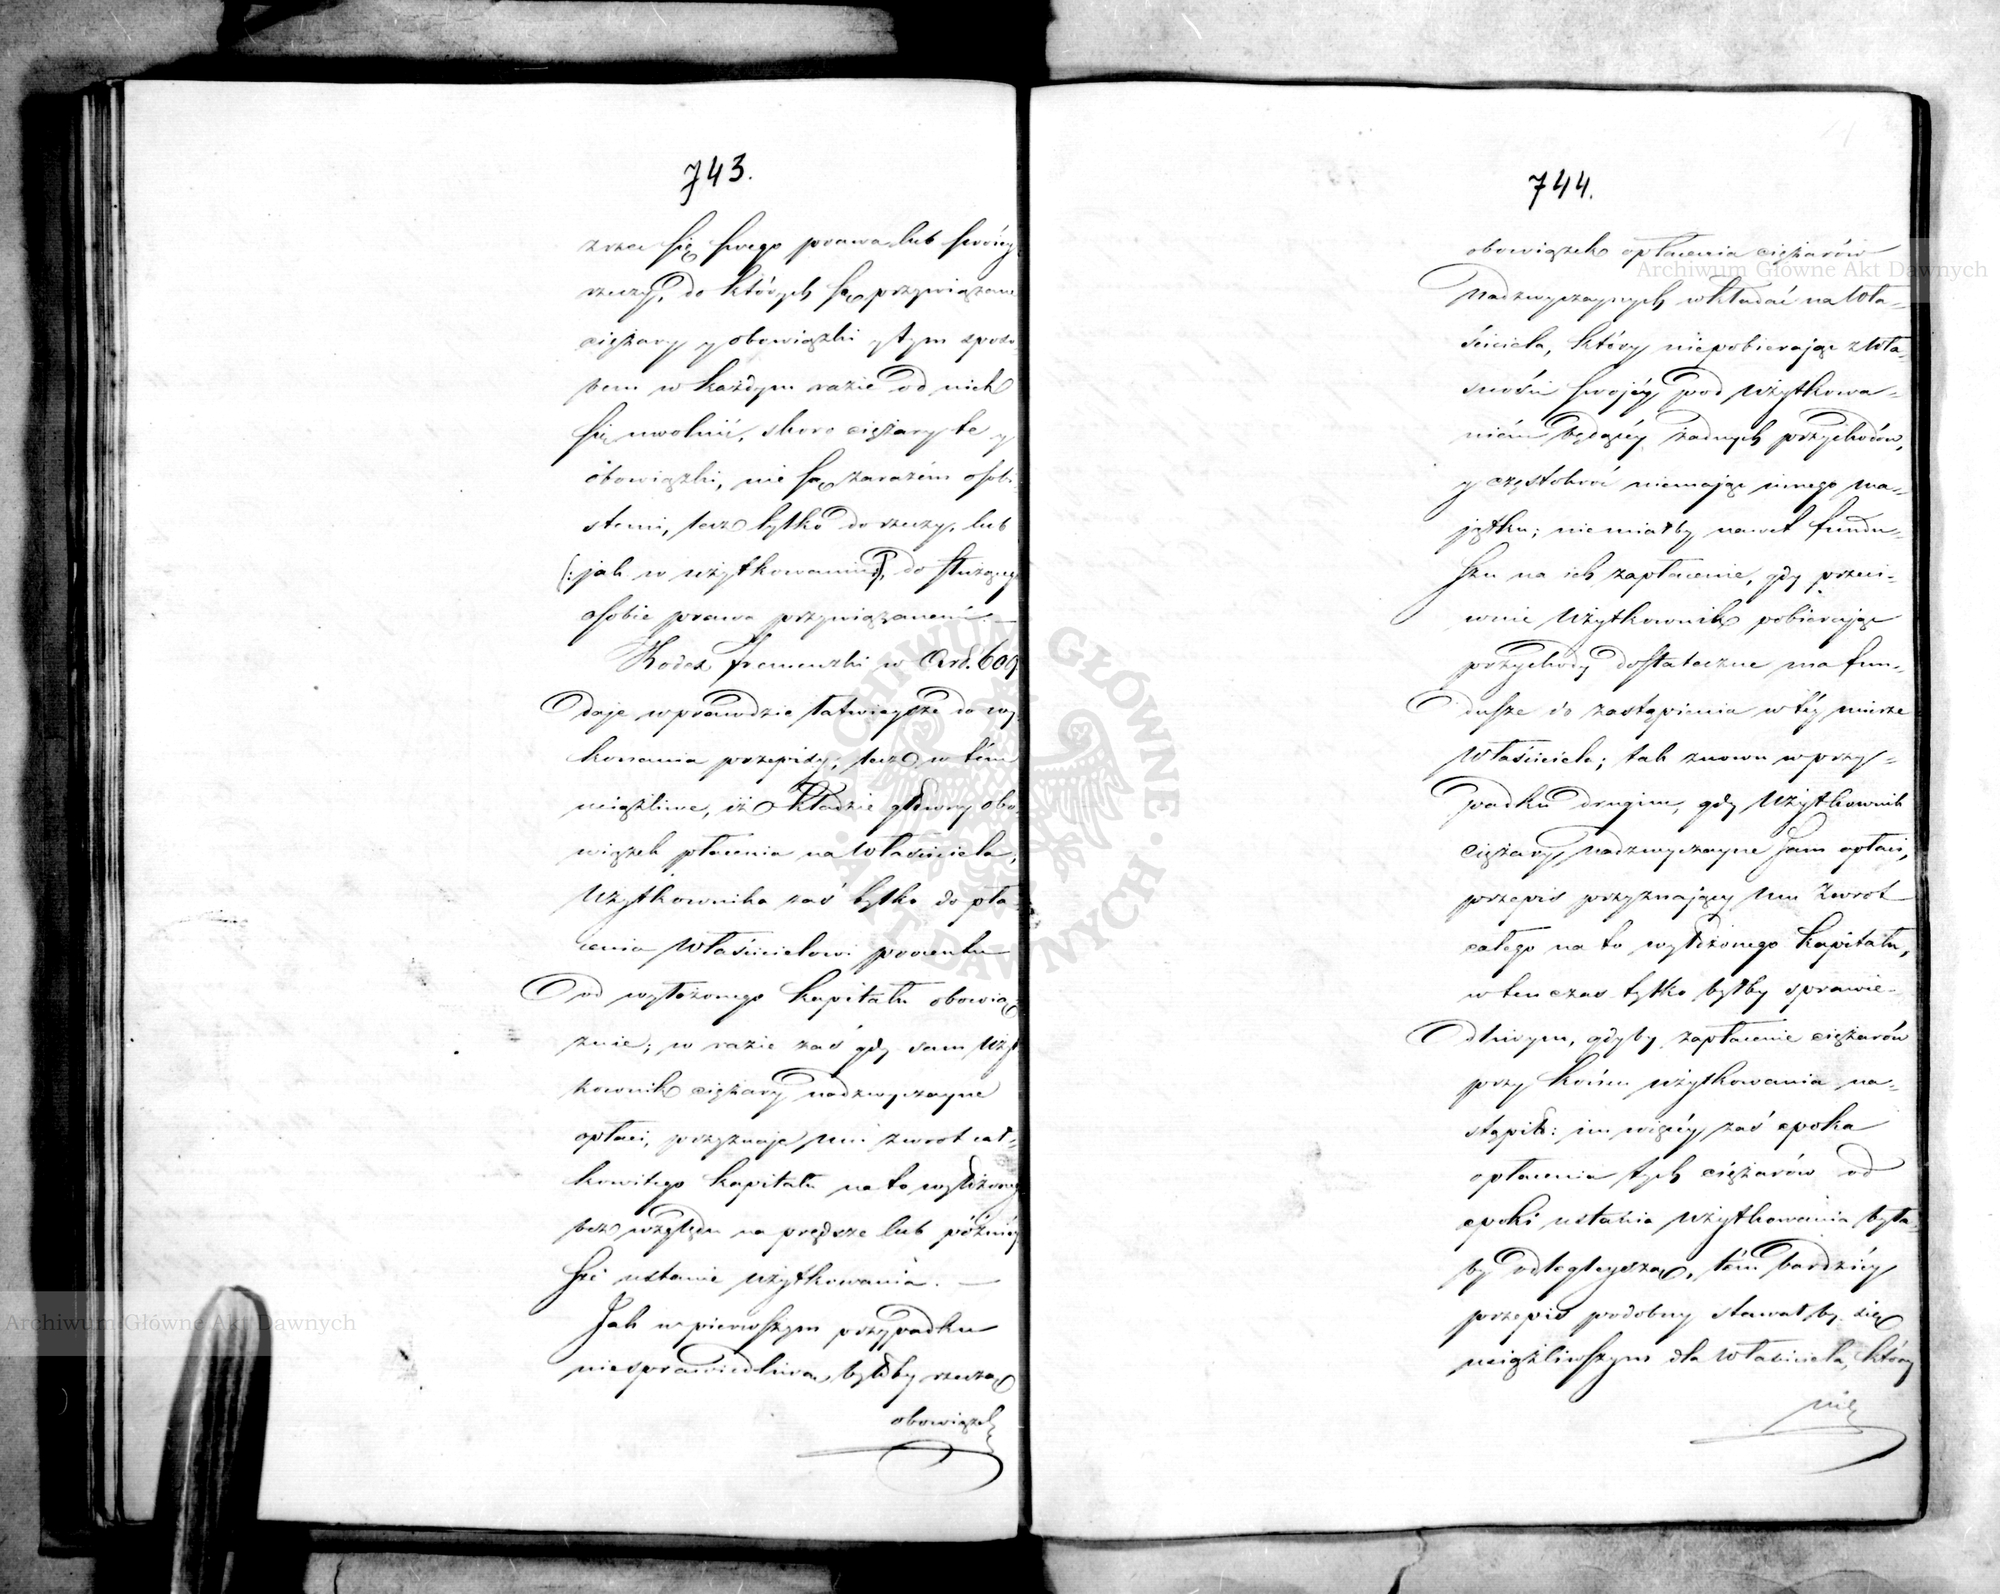 743.
zrzec się swego prawa lub swóiey
rzeczy, do których są przywiązane
ciężary y obowiązki y tym sposo-
bem w każdym razie od nich
się uwolnić, skoro ciężary te y
obowiązki, nie są zarazem osobi-
stemi, lecz tylko do rzeczy, lub
(:jak w użytkowaniu:), do służącego
osobie prawa przywiązanemi. —
Kodex francuzki w Art. 609
daje wprawdzie łatwieysze do wy-
konania przepisy, lecz w tém
uciążliwe, iż kładzie główny obo-
wiązek płacenia na Właściciela,
Użytkownika zaś tylko do pła-
cenia Właścicielowi procentu
od wyłożonego kapitału obowią-
zuie; w razie zaś gdy sam Użyt-
kownik ciężary nadzwyczayne
opłaci, przyznaje mu zwrot cał-
kowitego kapitału na to wyłożonego
bez względu na prędsze lub późniey-
sze ustanie użytkowania. —
Jak w pierwszym przypadku
niesprawiedliwą byłoby rzeczą
obowiązek
744.
obowiązek opłacenia ciężarów
nadzwyczaynych wkładać na Wła-
ściciela, który niepobierając z wła-
sności swojéy pod użytkowa-
niém będącéy żadnych przychodów,
y częstokroć niemając innego ma-
jątku; niemiałby nawet fundu-
szu na ich zapłacenie, gdy przeci-
wnie Użytkownik pobierając
przychody dostateczne ma fun-
dusze do zastąpienia w téy mierze
Właściciela; tak znowu w przy-
padku drugim, gdy Użytkownik
ciężary nadzwyczayne sam opłaci,
przepis przyznający mu zwrot
całego na to wyłożonego kapitału,
wtenczas tylko byłby sprawie-
dliwym, gdyby zapłacenie ciężarów
przy końcu użytkowania na-
stąpiło: im więcéy zaś epoka
opłacenia tych ciężarów od
epoki ustania użytkowania była-
by odległeyszą, tém bardziéy
przepis podobny stawałby się
uciążliwszym dla Właściciela, który
nie
Archiwum Główne Akt Dawnych
Archiwum Główne Akt Dawnych
ARCHIWUM GŁÓWNE · AKT DAWNYCH ·